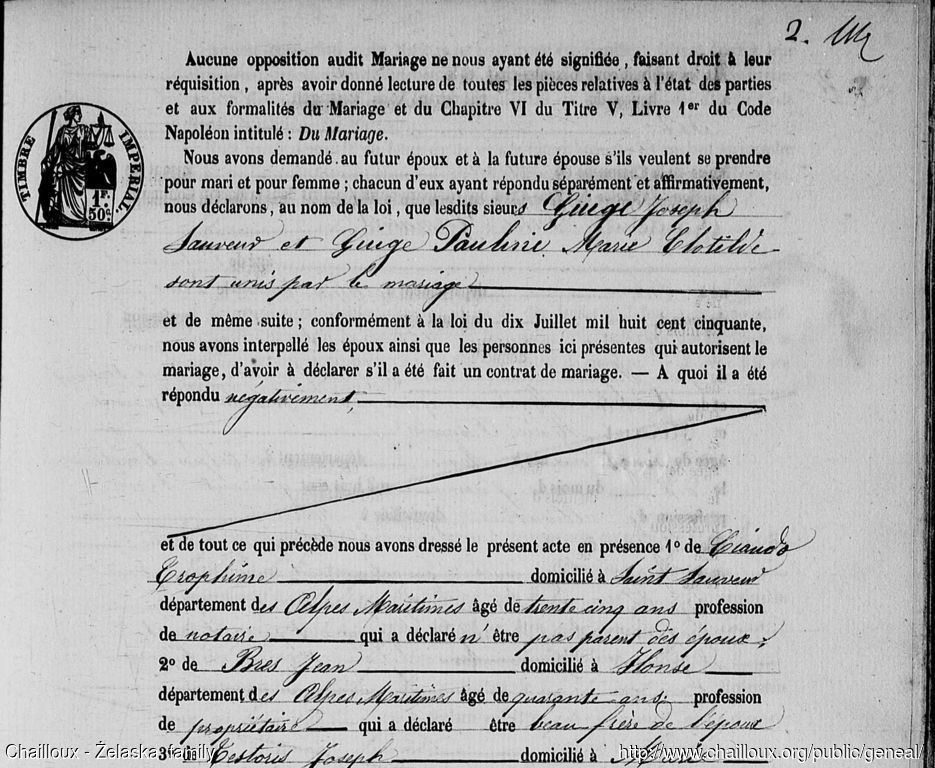 2.
Aucune opposition audit Mariage ne nous ayant été signifiée, faisant droit à leur
réquisition, après avoir donné lecture de toutes les pièces relatives à l'état des parties
et aux formalités du Mariage et du Chapitre VI du Titre V, Livre 1er du Code
Napoléon intitulé : Du Mariage.
TIMBRE IMPÉRIAL.
1F.
50c.
Nous avons demandé au futur époux et à la future épouse s'ils veulent se prendre
pour mari et pour femme ; chacun d'eux ayant répondu séparément et affirmativement,
nous déclarons, au nom de la loi, que lesdits sieurs Giuge Joseph
Sauveur et Giuge Pauline Marie Clotilde
sont unis par le mariage
et de même suite ; conformément à la loi du dix Juillet mil huit cent cinquante,
nous avons interpellé les époux ainsi que les personnes ici présentes qui autorisent le
mariage, d'avoir à déclarer s'il a été fait un contrat de mariage. — A quoi il a été
répondu négativement,
et de tout ce qui précède nous avons dressé le présent acte en présence 1º de Ciaudo
Trophime domicilié à Saint Sauveur
département des Alpes Maritimes âgé de trente cinq ans profession
de notaire qui a déclaré n'être pas parent des époux ;
2º de Bres Jean domicilié à Ilonse
département des Alpes Maritimes âgé de quarante ans profession
de propriétaire qui a déclaré être beau frère de l'époux
3º de Testoris Joseph domicilié à
Chailloux - Żelaska family
http://www.chailloux.org/public/geneal/